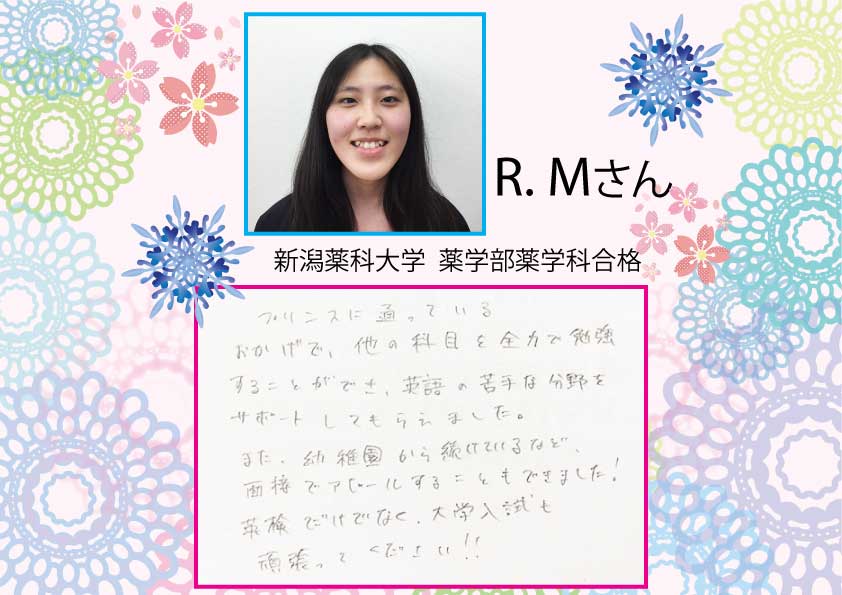 R. Mさん
新潟薬科大学 薬学部薬学科合格
プリンスに通っている
おかげで、他の科目を全力で勉強
することができ、英語の苦手な分野を
サポートしてもらえました。
また、幼稚園から続けているなど、
面接でアピールすることもできました！
英検だけでなく、大学入試も
頑張ってください!!